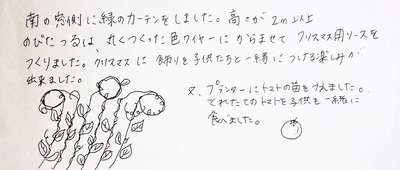 南の窓側に緑のカーテンをしました。高さが2m以上
のびたつるは、丸くつくった色ワイヤーにからませて クリスマス用リースを
つくりました。クリスマスに 飾りを子供たちと一緒に つける楽しみが
出来ました。
又、プランターにトマトの苗をうえました。
とれたてのトマトを子供も一緒に
食べました。